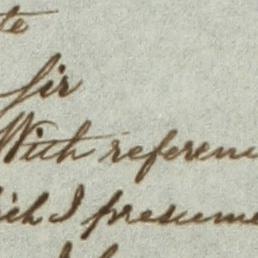 te
Sir
With referenc
ich I presume